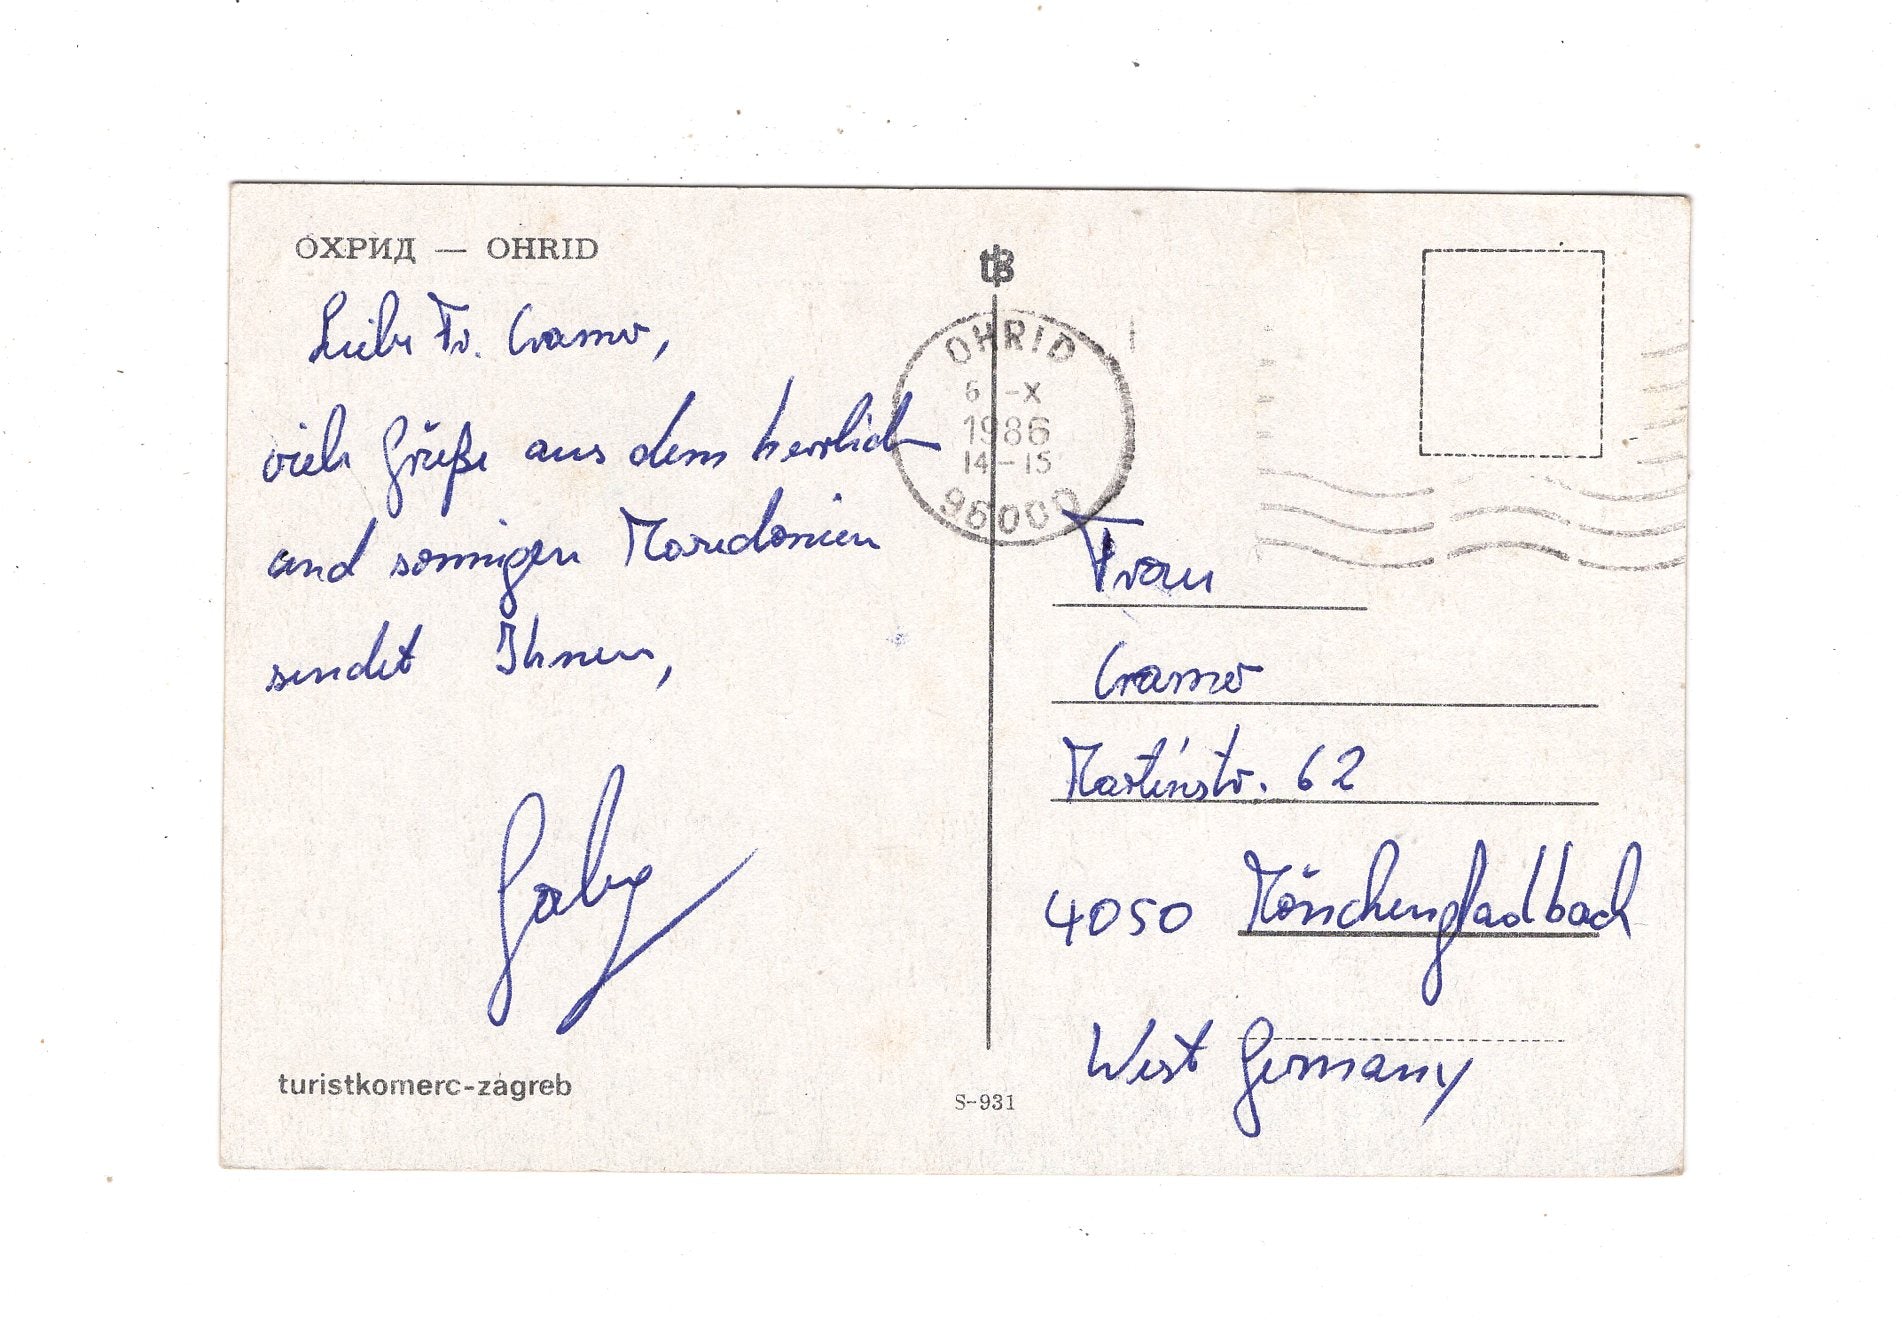 ОХРИД — OHRID
Liebe Fr. Cramer,
viele Grüße aus dem herrlich
und sonnigen Mazedonien
sendet Ihnen,
Gaby
turistkomerc-zagreb
S-931
OHRID
6 -X
1986
14-15
96000
Frau
Cramer
Martinstr. 62
4050 Mönchengladbach
West Germany